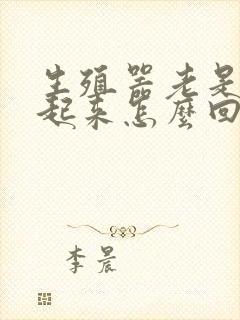 生殖器老是
起来怎麼回
李晨